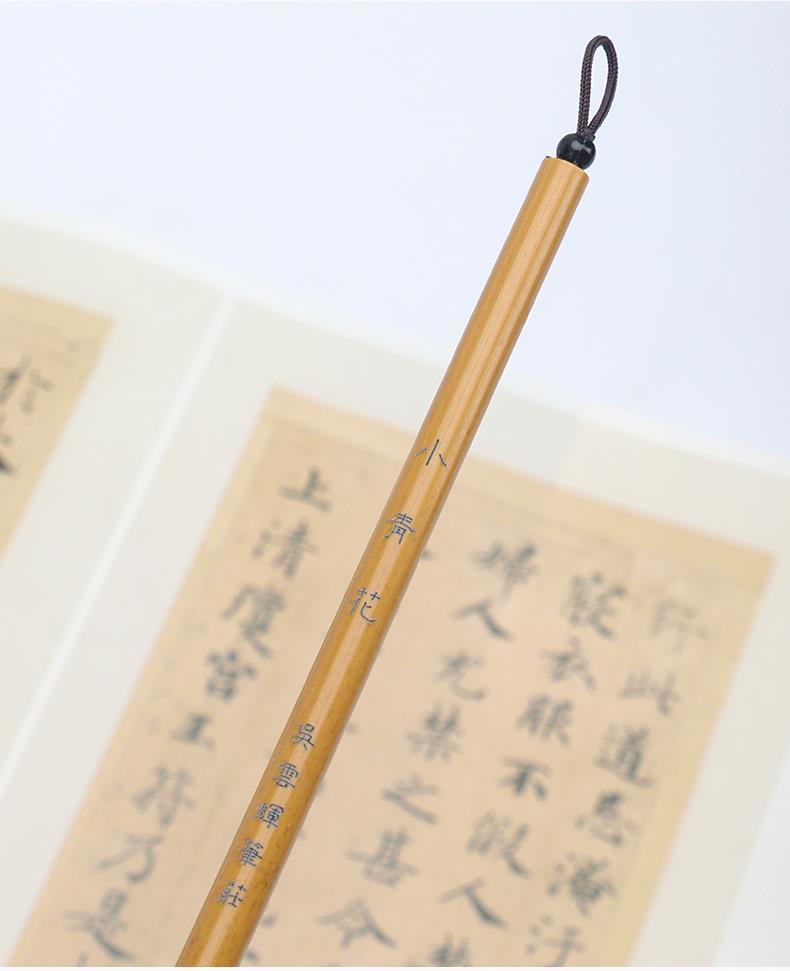 小青花
吳雲輝筆莊
行此道忌淹汙
寢衣服不假人
婦人尤禁之甚令
上清瓊宮玉符乃是